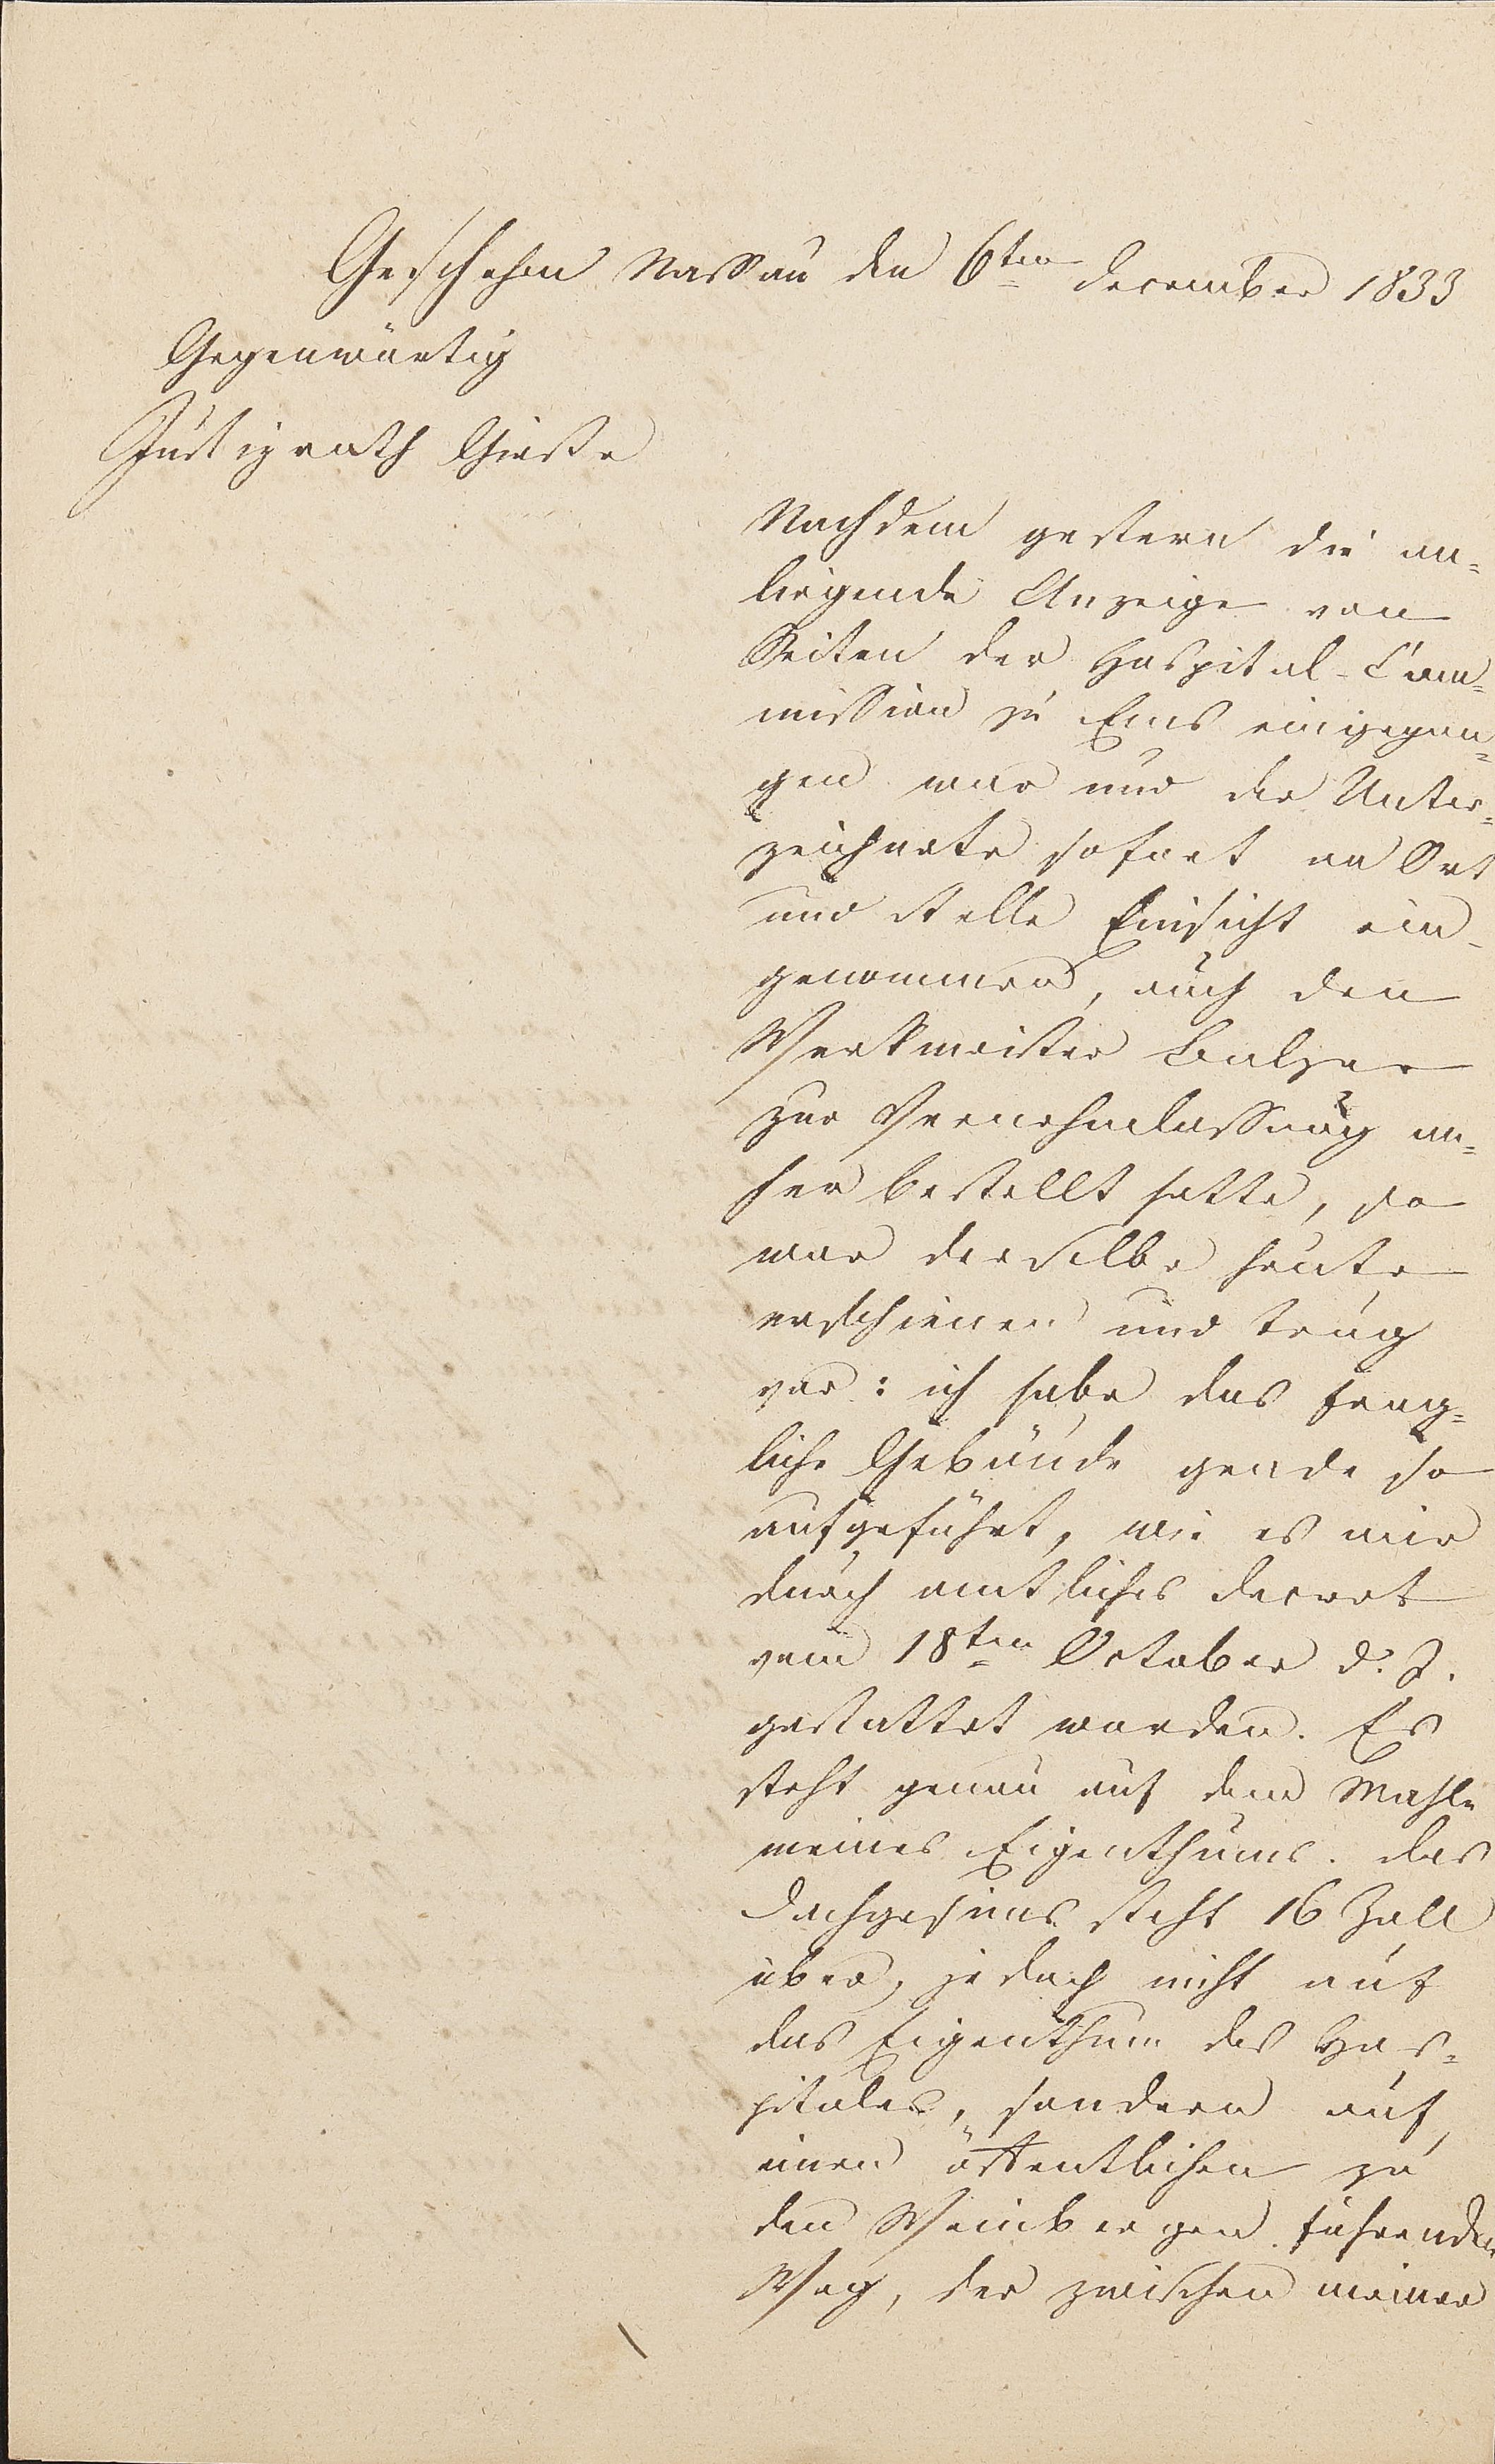 Geschehen Nassau den 6ten December 1833
Gegenwärtig
Justizrath Gieße
Nachdem gestern die an=
liegende Anzeige von
Seiten der Hospital-Com=
mission zu Ems eingegan=
gen war und der Unter=
zeichnete sofort an Ort
und Stelle Einsicht ein-
genommen, auch den
Werkmeister Balzer
zur Vernehmlassung an=
her bestellt hatte, so
war derselbe heute
erschienen und trug
vor: ich habe das frag=
liche Gebäude grade so
aufgeführt, wie es mir
durch amtliches Decret
vom 18ten October d. J.
gestattet worden. Es
steht genau auf dem Mahle
meines Eigenthums. Das
Dachgesims steht 16 Zoll
über, jedoch nicht auf
das Eigenthum des Hos=
pitales, sondern auf
einen öffentlichen zu
den Weinbergen führenden
Weg, der zwischen meiner